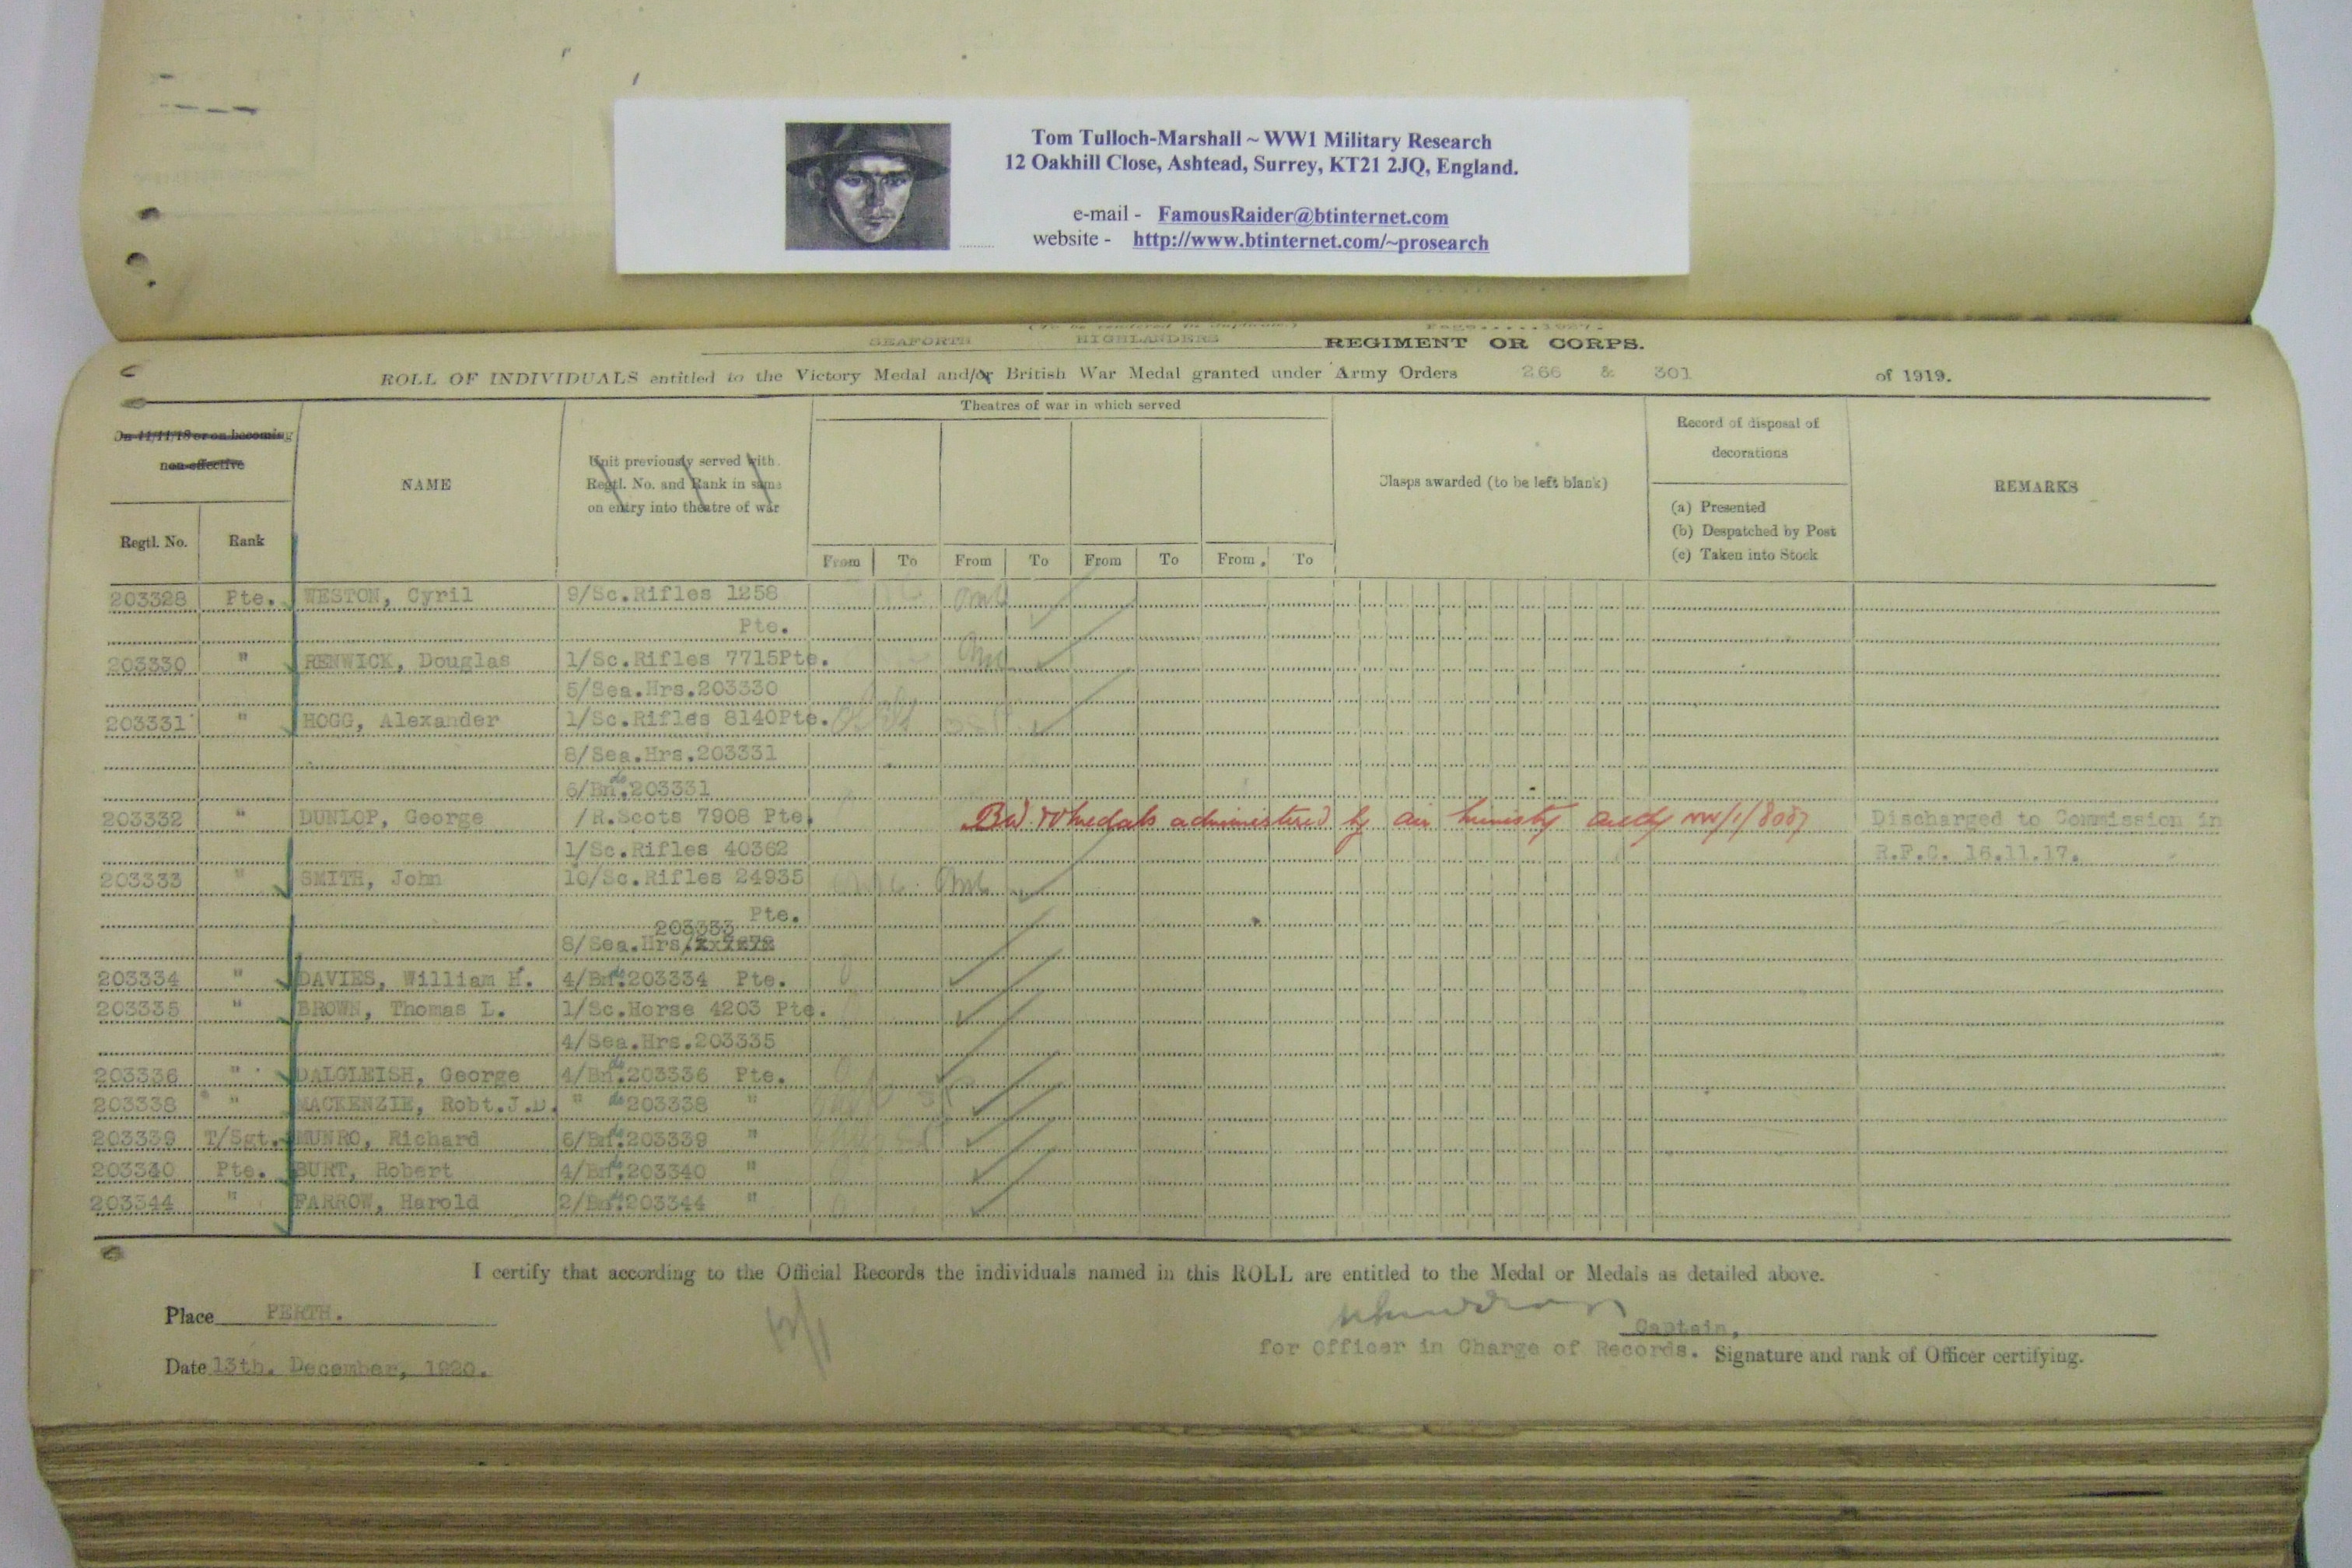 Tom Tulloch-Marshall ~ WW1 Military Research
12 Oakhill Close, Ashtead, Surrey, KT21 2JQ, England.
e-mail - FamousRaider@btinternet.com
website - http://www.btinternet.com/~prosearch
(To be rendered in duplicate.) Page.....1927.
SEAFORTH HIGHLANDERS REGIMENT OR CORPS.
ROLL OF INDIVIDUALS entitled to the Victory Medal and/or British War Medal granted under Army Orders 266 & 301 of 1919.
On 11/11/18 or on becoming
non-effective
Regtl. No. Rank
NAME
Unit previously served with.
Regtl. No. and Rank in same
on entry into theatre of war
Theatres of war in which served
From To From To From To From To
Clasps awarded (to be left blank)
Record of disposal of
decorations
(a) Presented
(b) Despatched by Post
(c) Taken into Stock
REMARKS
203328 Pte. WESTON, Cyril 9/Sc.Rifles 1258
Pte.
203330 " RENWICK, Douglas 1/Sc.Rifles 7715Pte.
5/Sea.Hrs.203330
203331 " HOGG, Alexander 1/Sc.Rifles 8140Pte.
8/Sea.Hrs.203331
6/Bn.do 203331
203332 " DUNLOP, George /R.Scots 7908 Pte. BW & V medals administered by air ministry Discharged to Commission in
1/Sc.Rifles 40362 R.F.C. 16.11.17.
203333 " SMITH, John 10/Sc.Rifles 24935
Pte.
203333
8/Sea.Hrs/
203334 " DAVIES, William H. 4/Bn.do 203334 Pte.
203335 " BROWN, Thomas L. 1/Sc.Horse 4203 Pte.
4/Sea.Hrs.203335
203336 " DALGLEISH, George 4/Bn.do 203336 Pte.
203338 " MACKENZIE, Robt.J.D. " do 203338 "
203339 T/Sgt. MUNRO, Richard 6/Bn.do 203339 "
203340 Pte. BURT, Robert 4/Bn.do 203340 "
203344 " FARROW, Harold 2/Bn.do 203344 "
I certify that according to the Official Records the individuals named in this ROLL are entitled to the Medal or Medals as detailed above.
Place PERTH.
Captain,
for Officer in Charge of Records. Signature and rank of Officer certifying.
Date 13th. December, 1920.